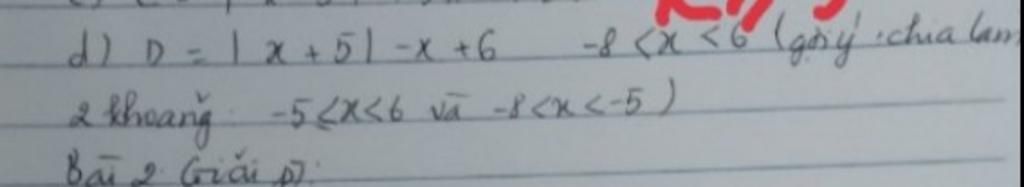 d) D = | x + 5 | - x + 6 -8 < x < 6 (gợi ý: chia làm
2 khoảng: -5 ≤ x < 6 và -8 < x < -5 )
Bài 2 Giải